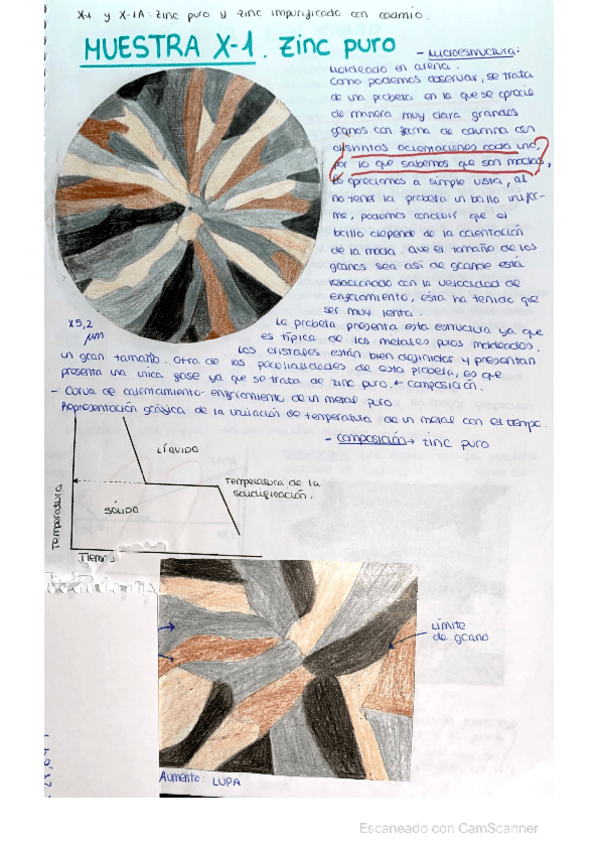 X-1 y X-1A: Zinc puro y zinc impurificado con cadmio.
MUESTRA X-1. Zinc puro
- Microestructura:
Moldeado en arena.
Como podemos observar, se trata
de una probeta en la que se aprecia
de manera muy clara grandes
granos con forma de columna con
distintas orientaciones cada uno,
por lo que sabemos que son maclas,
lo apreciamos a simple vista, al
no tener la probeta un brillo unifor-
me, podemos concluir que el
brillo depende de la orientación
de la macla. Que el tamaño de los
granos sea así de grande está
relacionado con la velocidad de
enfriamiento, ésta ha tenido que
ser muy lenta.
x5,2
μm
La probeta presenta esta estructura ya que
es típica de los metales puros moldeados.
Los cristales están bien definidos y presentan
un gran tamaño. Otra de las peculiaridades de esta probeta, es que
presenta una única fase ya que se trata de zinc puro. ← composición.
- Curva de calentamiento-enfriamiento de un metal puro
Representación gráfica de la variación de temperatura de un metal con el tiempo.
- Composición → zinc puro
LÍQUIDO
Temperatura de la
solidificación.
SÓLIDO
Temperatura
Tiempo
Límite
de grano
Aumento: LUPA
Escaneado con CamScanner